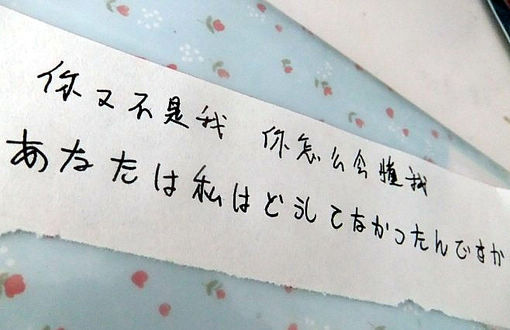 你又不是我 你怎么会懂我
あなたは私はどうしてなかったんですか